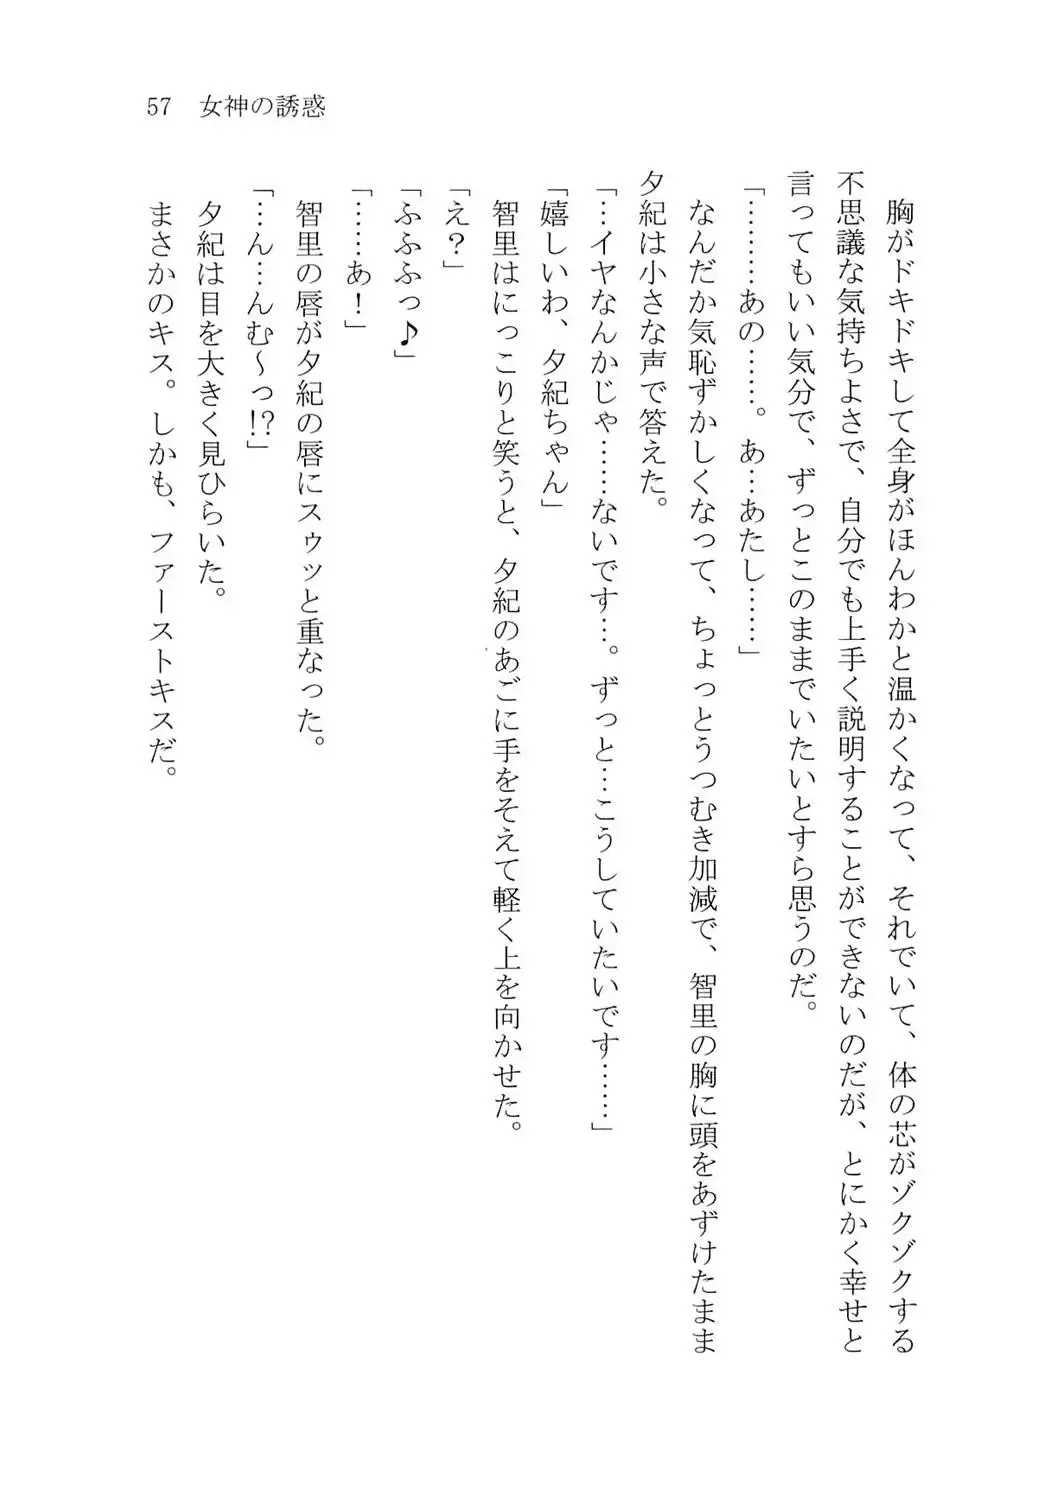 57 女神の誘惑
胸がドキドキして全身がほんわかと温かくなって、それでいて、体の芯がゾクゾクする
不思議な気持ちよさで、自分でも上手く説明することができないのだが、とにかく幸せと
言ってもいい気分で、ずっとこのままでいたいとすら思うのだ。
「………あの……。あ…あたし……」
なんだか気恥ずかしくなって、ちょっとうつむき加減で、智里の胸に頭をあずけたまま
夕紀は小さな声で答えた。
「…イヤなんかじゃ……ないです…。ずっと…こうしていたいです……」
「嬉しいわ、夕紀ちゃん」
智里はにっこりと笑うと、夕紀のあごに手をそえて軽く上を向かせた。
「え？」
「ふふふっ♪」
「……あ！」
智里の唇が夕紀の唇にスゥッと重なった。
「…ん…んむ～っ!?」
夕紀は目を大きく見ひらいた。
まさかのキス。しかも、ファーストキスだ。